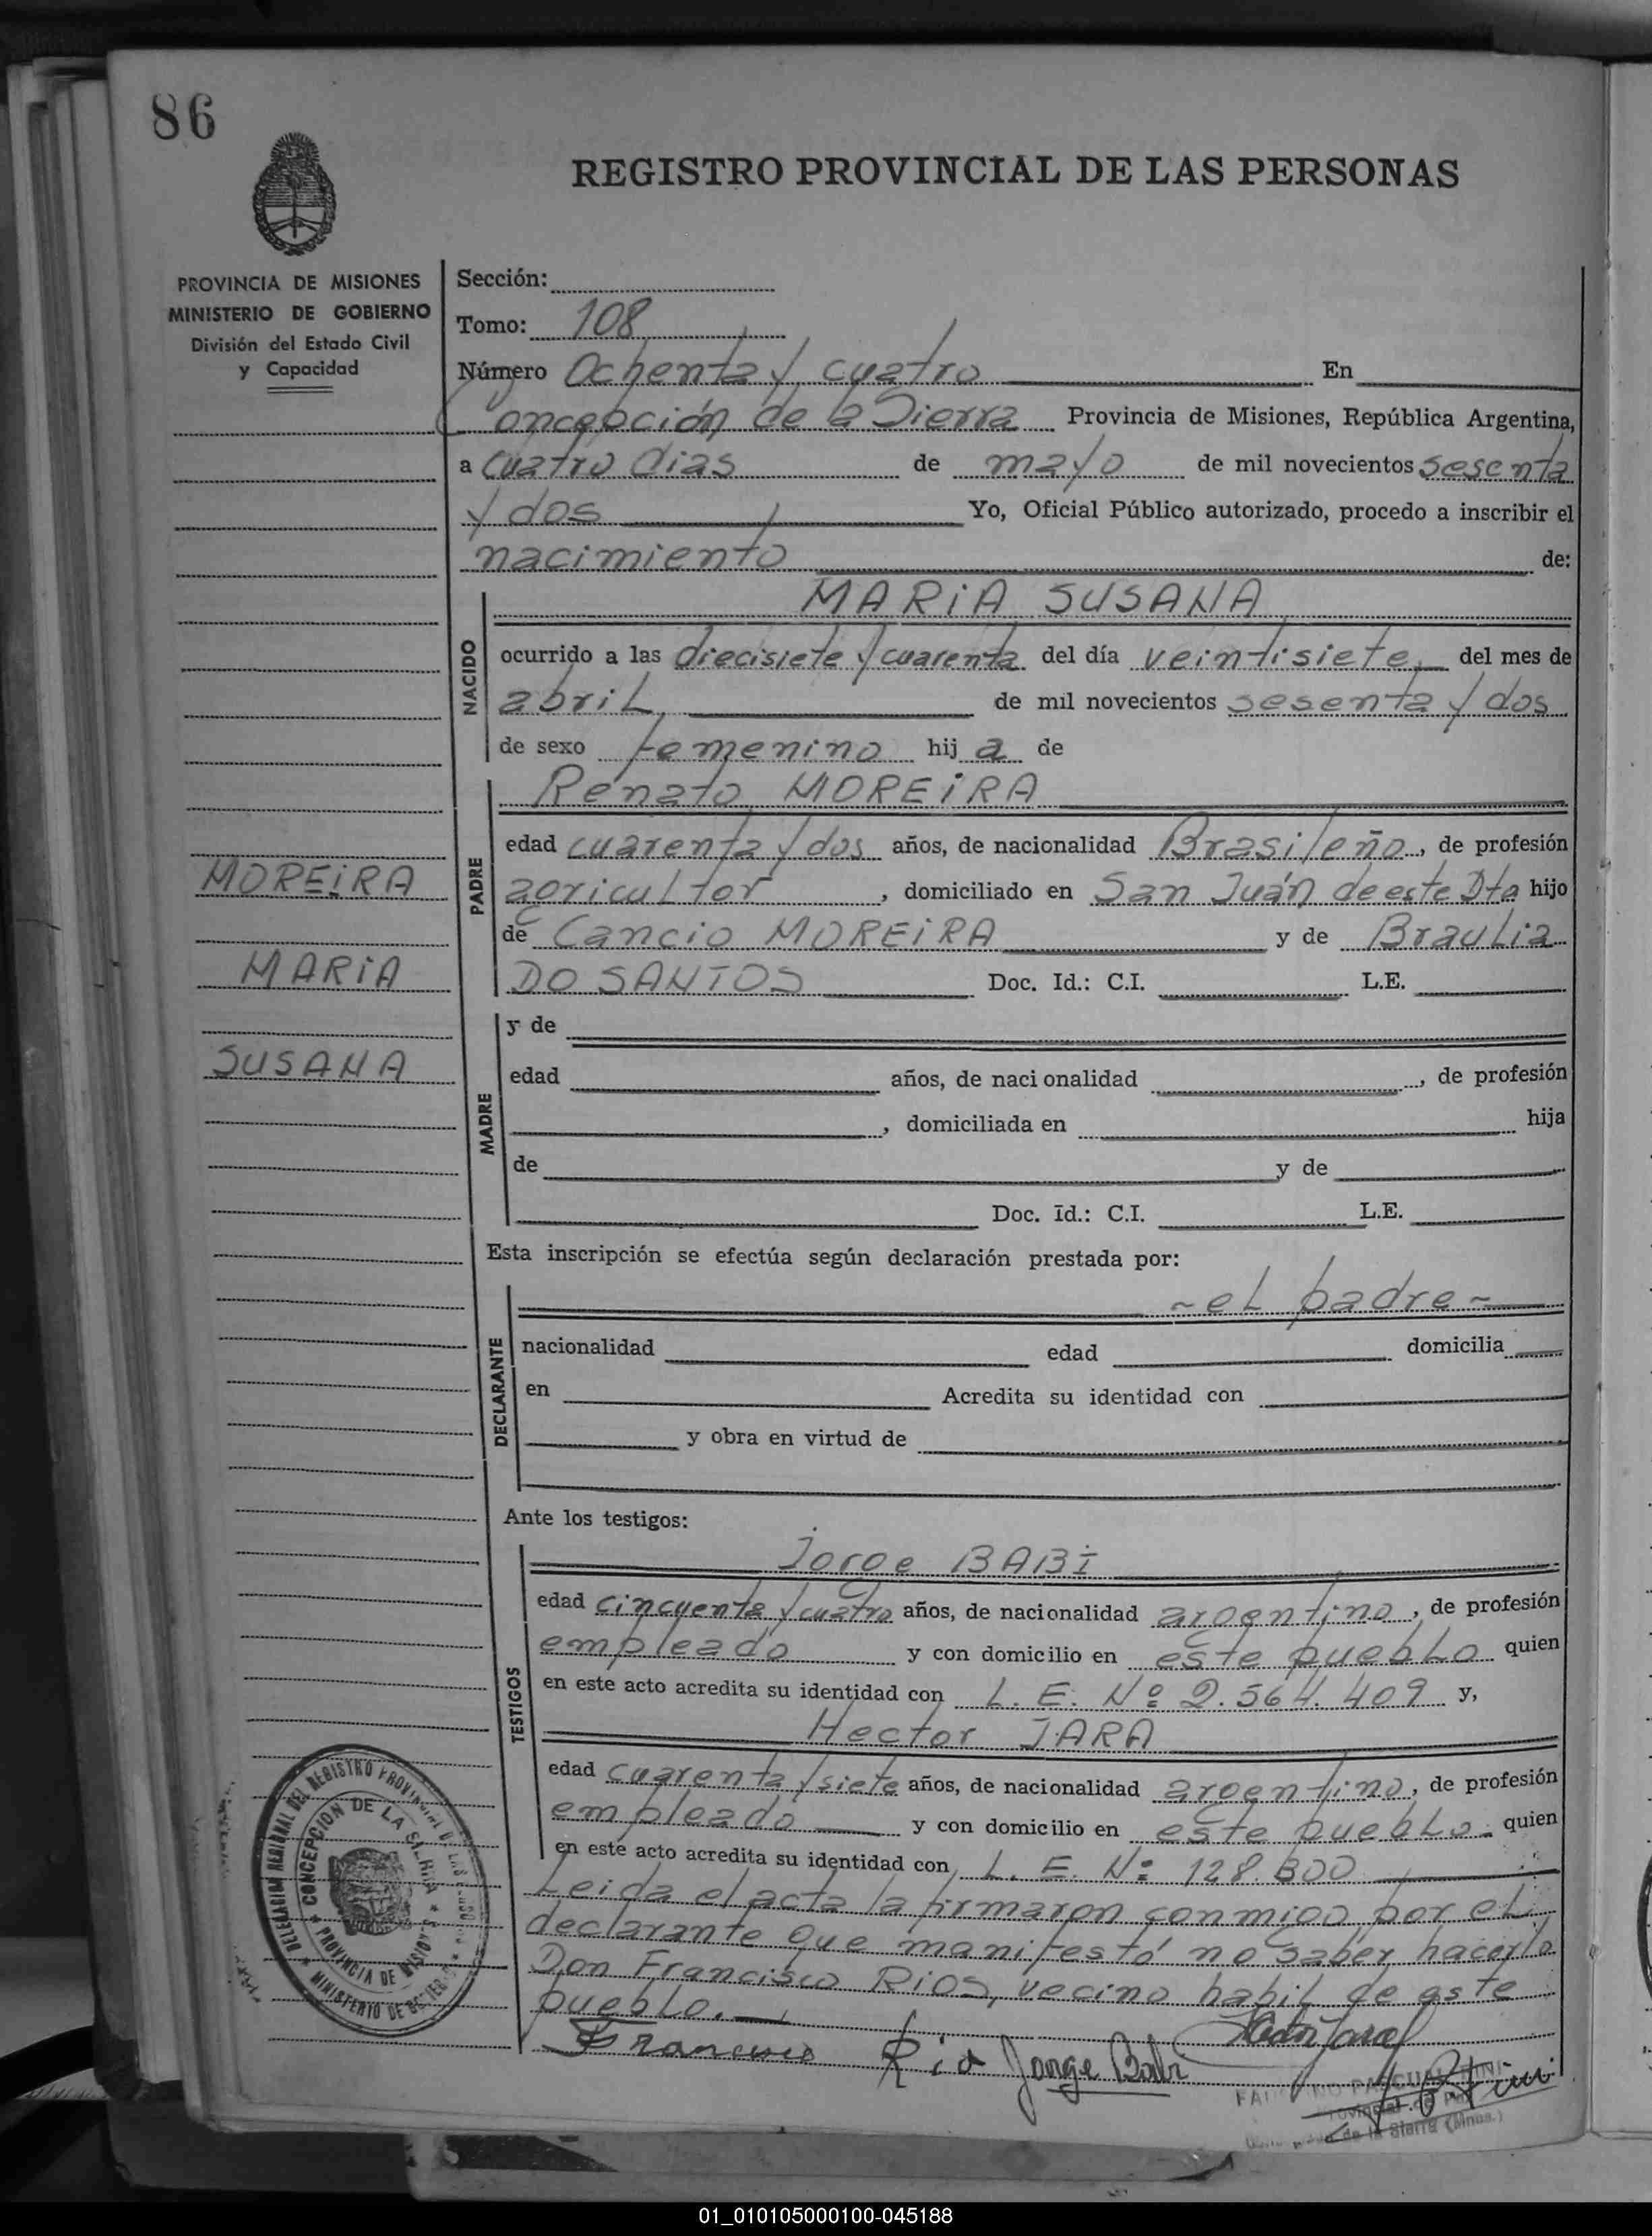 86
REGISTRO PROVINCIAL DE LAS PERSONAS
PROVINCIA DE MISIONES
MINISTERIO DE GOBIERNO
División del Estado Civil
y Capacidad
Sección:
Tomo: 108
Número Ochenta y cuatro En
Concepción de la Sierra Provincia de Misiones, República Argentina,
a cuatro dias de mayo de mil novecientos sesenta
y dos Yo, Oficial Público autorizado, procedo a inscribir el
nacimiento de:
MARIA SUSANA
NACIDO
ocurrido a las diecisiete y cuarenta del día veintisiete, del mes de
abril, de mil novecientos sesenta y dos
de sexo femenino hij a de
Renato MOREIRA
PADRE
edad cuarenta y dos años, de nacionalidad Brasileño, de profesión
agricultor, domiciliado en San Juán de este Dto hijo
de Cancio MOREIRA y de Braulia
DO SANTOS Doc. Id.: C.I. L.E.
MOREIRA
MARIA
SUSANA
MADRE
y de
edad años, de naci onalidad , de profesión
, domiciliada en hija
de y de
Doc. Id.: C.I. L.E.
Esta inscripción se efectúa según declaración prestada por:
~ el padre ~
DECLARANTE
nacionalidad edad domicilia
en Acredita su identidad con
y obra en virtud de
Ante los testigos:
Jorge BABI
TESTIGOS
edad cincuenta y cuatro años, de nacionalidad argentino, de profesión
empleado y con domicilio en este pueblo quien
en este acto acredita su identidad con L. E. Nº 2.564.409 y,
Hector JARA
edad cuarenta y siete años, de nacionalidad argentino, de profesión
empleado y con domicilio en este pueblo quien
en este acto acredita su identidad con, L. E. Nº 128.800
Leida el acta la firmaron conmigo por el
declarante que manifestó no saber hacerlo
Don Francisco RIOS, vecino habil de este
pueblo.
Francisco Rio Jorge Babi
DELEGACION REGIONAL DEL REGISTRO PROVINCIAL DE LAS PERSONAS
CONCEPCION DE LA SIERRA
PROVINCIA DE MISIONES
MINISTERIO DE GOBIERNO
de la Sierra (Mnes.)
01_010105000100-045188